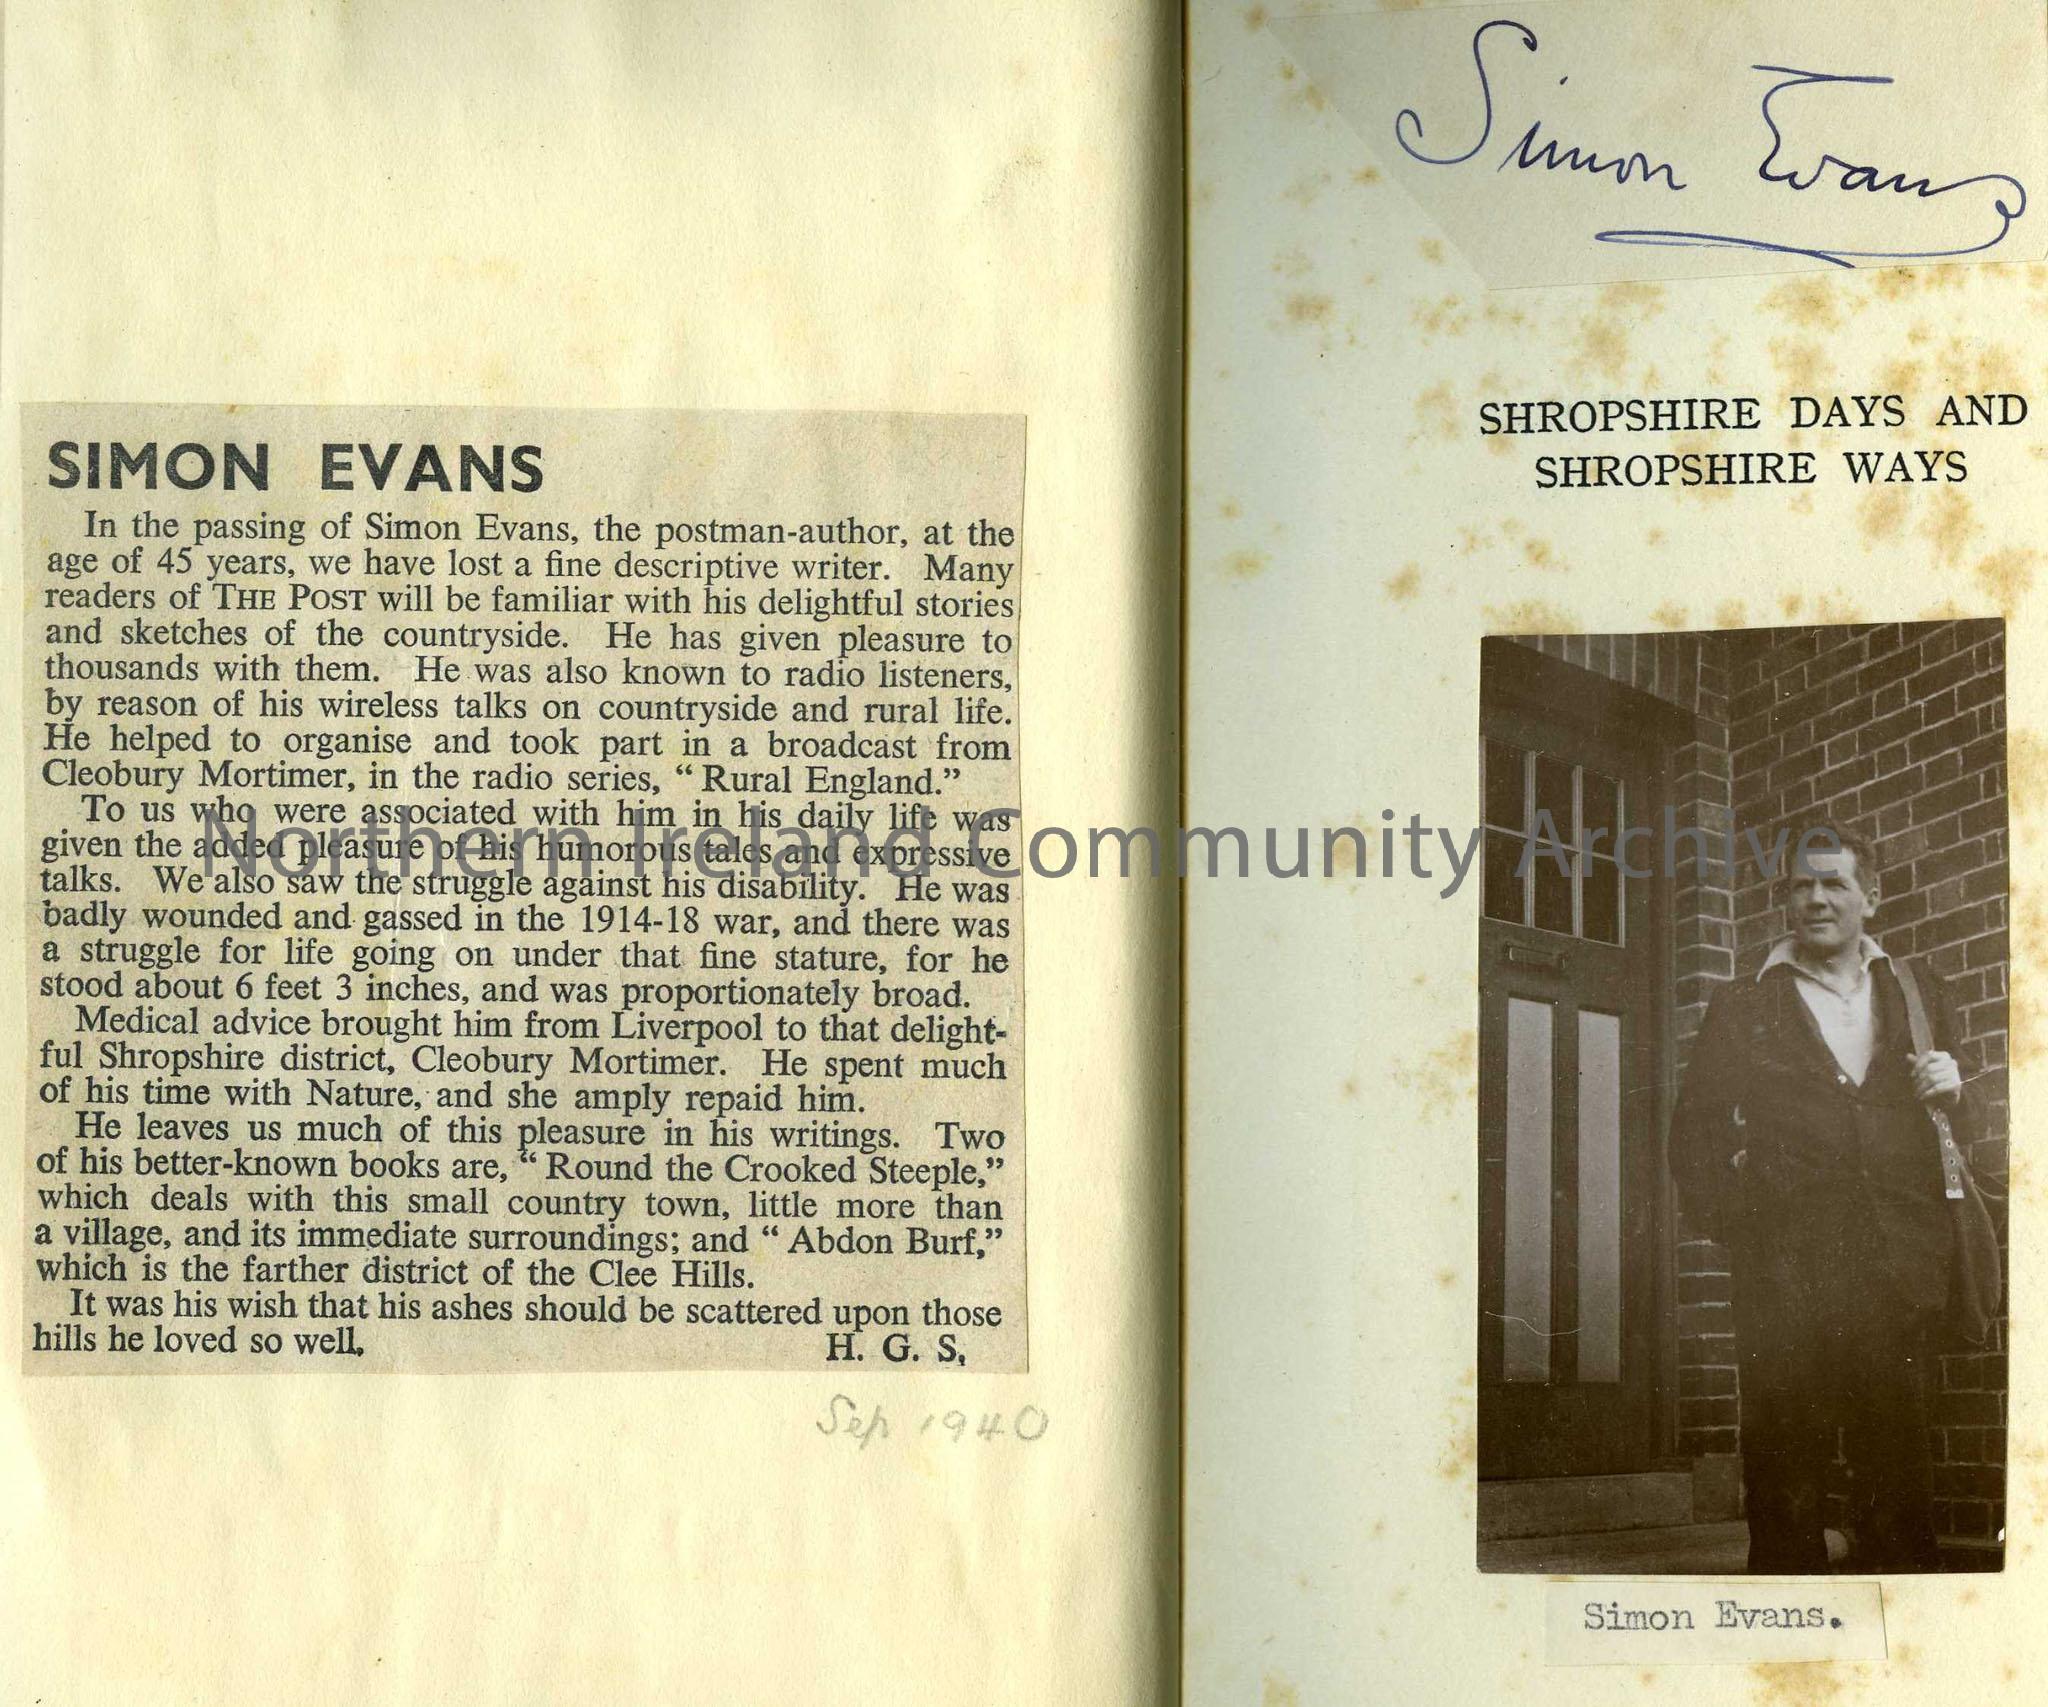 SIMON EVANS
In the passing of Simon Evans, the postman-author, at the
age of 45 years, we have lost a fine descriptive writer. Many
readers of THE POST will be familiar with his delightful stories
and sketches of the countryside. He has given pleasure to
thousands with them. He was also known to radio listeners,
by reason of his wireless talks on countryside and rural life.
He helped to organise and took part in a broadcast from
Cleobury Mortimer, in the radio series, “Rural England.”
To us who were associated with him in his daily life was
given the added pleasure of his humorous tales and expressive
talks. We also saw the struggle against his disability. He was
badly wounded and gassed in the 1914-18 war, and there was
a struggle for life going on under that fine stature, for he
stood about 6 feet 3 inches, and was proportionately broad.
Medical advice brought him from Liverpool to that delight-
ful Shropshire district, Cleobury Mortimer. He spent much
of his time with Nature, and she amply repaid him.
He leaves us much of this pleasure in his writings. Two
of his better-known books are, “Round the Crooked Steeple,”
which deals with this small country town, little more than
a village, and its immediate surroundings; and “Abdon Burf,”
which is the farther district of the Clee Hills.
It was his wish that his ashes should be scattered upon those
hills he loved so well. H. G. S.
Sep 1940
Simon Evans
SHROPSHIRE DAYS AND
SHROPSHIRE WAYS
Simon Evans.
Northern Ireland Community Archive